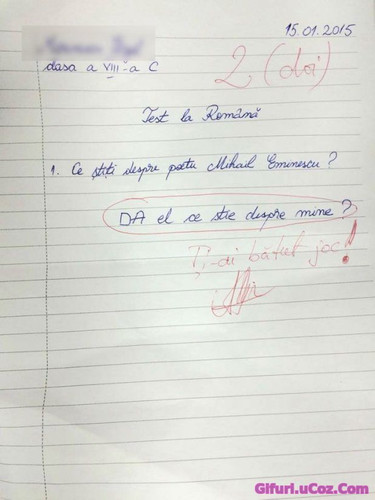 15.01.2015
clasa a VIII-a C
2 (doi)
Test la Română
1. Ce știți despre poetu Mihail Eminescu?
DA el ce știe despre mine?
Ți-ai bătut joc!
Gifuri.uCoz.Com